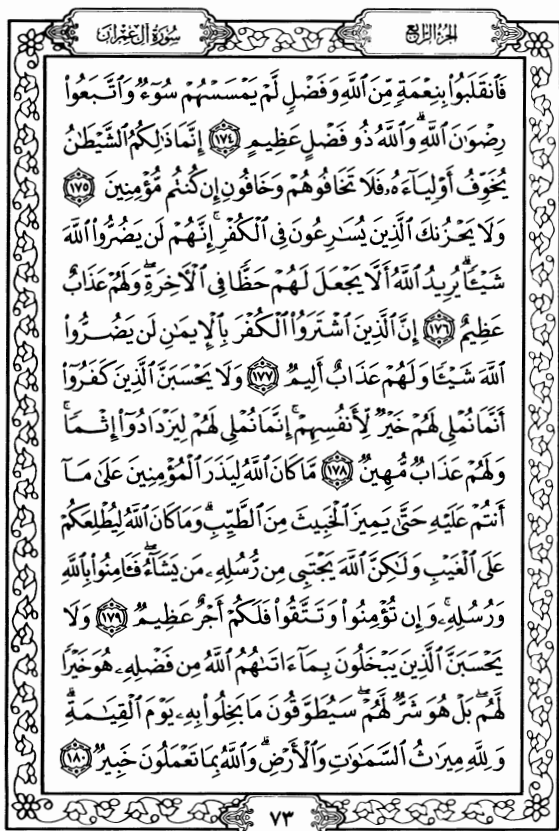 الجزء الرابع
سورة آل عمران
فَٱنقَلَبُوا۟ بِنِعْمَةٍ مِّنَ ٱللَّهِ وَفَضْلٍ لَّمْ يَمْسَسْهُمْ سُوٓءٌ وَٱتَّبَعُوا۟
رِضْوَٰنَ ٱللَّهِ ۗ وَٱللَّهُ ذُو فَضْلٍ عَظِيمٍ ﴿١٧٤﴾ إِنَّمَا ذَٰلِكُمُ ٱلشَّيْطَٰنُ
يُخَوِّفُ أَوْلِيَآءَهُۥ فَلَا تَخَافُوهُمْ وَخَافُونِ إِن كُنتُم مُّؤْمِنِينَ ﴿١٧٥﴾
وَلَا يَحْزُنكَ ٱلَّذِينَ يُسَٰرِعُونَ فِى ٱلْكُفْرِ ۚ إِنَّهُمْ لَن يَضُرُّوا۟ ٱللَّهَ
شَيْـًٔا ۗ يُرِيدُ ٱللَّهُ أَلَّا يَجْعَلَ لَهُمْ حَظًّا فِى ٱلْـَٔاخِرَةِ ۖ وَلَهُمْ عَذَابٌ
عَظِيمٌ ﴿١٧٦﴾ إِنَّ ٱلَّذِينَ ٱشْتَرَوُا۟ ٱلْكُفْرَ بِٱلْإِيمَٰنِ لَن يَضُرُّوا۟
ٱللَّهَ شَيْـًٔا وَلَهُمْ عَذَابٌ أَلِيمٌ ﴿١٧٧﴾ وَلَا يَحْسَبَنَّ ٱلَّذِينَ كَفَرُوٓا۟
أَنَّمَا نُمْلِى لَهُمْ خَيْرٌ لِّأَنفُسِهِمْ ۚ إِنَّمَا نُمْلِى لَهُمْ لِيَزْدَادُوٓا۟ إِثْمًا ۚ
وَلَهُمْ عَذَابٌ مُّهِينٌ ﴿١٧٨﴾ مَّا كَانَ ٱللَّهُ لِيَذَرَ ٱلْمُؤْمِنِينَ عَلَىٰ مَآ
أَنتُمْ عَلَيْهِ حَتَّىٰ يَمِيزَ ٱلْخَبِيثَ مِنَ ٱلطَّيِّبِ ۗ وَمَا كَانَ ٱللَّهُ لِيُطْلِعَكُمْ
عَلَى ٱلْغَيْبِ وَلَٰكِنَّ ٱللَّهَ يَجْتَبِى مِن رُّسُلِهِۦ مَن يَشَآءُ ۖ فَـَٔامِنُوا۟ بِٱللَّهِ
وَرُسُلِهِۦ ۚ وَإِن تُؤْمِنُوا۟ وَتَتَّقُوا۟ فَلَكُمْ أَجْرٌ عَظِيمٌ ﴿١٧٩﴾ وَلَا
يَحْسَبَنَّ ٱلَّذِينَ يَبْخَلُونَ بِمَآ ءَاتَىٰهُمُ ٱللَّهُ مِن فَضْلِهِۦ هُوَ خَيْرًا
لَّهُم ۖ بَلْ هُوَ شَرٌّ لَّهُمْ ۖ سَيُطَوَّقُونَ مَا بَخِلُوا۟ بِهِۦ يَوْمَ ٱلْقِيَٰمَةِ ۗ
وَلِلَّهِ مِيرَٰثُ ٱلسَّمَٰوَٰتِ وَٱلْأَرْضِ ۗ وَٱللَّهُ بِمَا تَعْمَلُونَ خَبِيرٌ ﴿١٨٠﴾
٧٣